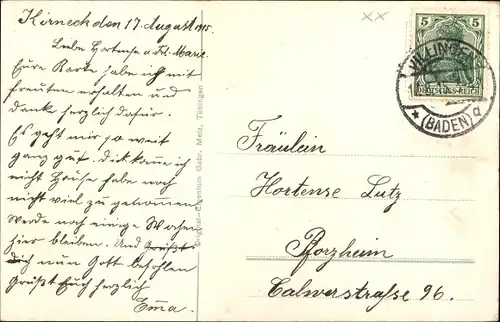 Kirneck den 17. August 1915.
Liebe Hortense u. Frl. Marie.
Eure Karte habe ich mit
freuten erhalten und
danke herzlich dafür.
Es geht mir so weit
ganz gut. Dick kam ich
nicht Hause habe noch
nicht viel zu genommen
Werde noch einige Wochen
hier bleiben. Und
nun Gott befohlen
Grüßt Euch herzlich
Emma.
Original-Eigentum Gebr. Metz, Tübingen
5 5
DEUTSCHES REICH
VILLINGEN
* (BADEN) a
Fräulein
Hortense Lutz
Pforzheim
Calwerstraße 96.